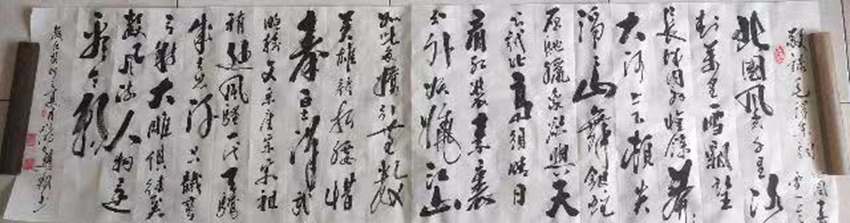 敬录毛泽东词
北国风光千里冰
封万里雪飘望
长城内外惟余莽
大河上下顿失
滔山舞银蛇
原驰蜡象欲与天
公试比高须晴日
看红装素裹
分外妖娆江山
如此多娇引无数
英雄竞折腰惜
秦皇汉武
略输文采唐宗宋祖
稍逊风骚一代天骄
成吉思汗只识弯
弓射大雕俱往矣
数风流人物还
看今朝